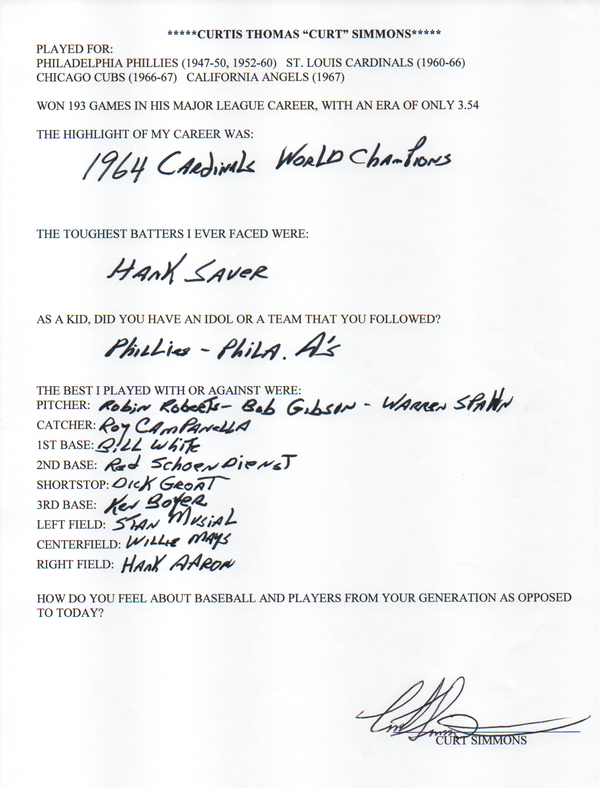 *****CURTIS THOMAS “CURT” SIMMONS*****
PLAYED FOR:
PHILADELPHIA PHILLIES (1947-50, 1952-60) ST. LOUIS CARDINALS (1960-66)
CHICAGO CUBS (1966-67) CALIFORNIA ANGELS (1967)
WON 193 GAMES IN HIS MAJOR LEAGUE CAREER, WITH AN ERA OF ONLY 3.54
THE HIGHLIGHT OF MY CAREER WAS:
1964 Cardinals World Champions
THE TOUGHEST BATTERS I EVER FACED WERE:
Hank Sauer
AS A KID, DID YOU HAVE AN IDOL OR A TEAM THAT YOU FOLLOWED?
Phillies - Phila. A's
THE BEST I PLAYED WITH OR AGAINST WERE:
PITCHER: Robin Roberts - Bob Gibson - Warren Spahn
CATCHER: Roy Campanella
1ST BASE: Bill White
2ND BASE: Red Schoendienst
SHORTSTOP: Dick Groat
3RD BASE: Ken Boyer
LEFT FIELD: Stan Musial
CENTERFIELD: Willie Mays
RIGHT FIELD: Hank Aaron
HOW DO YOU FEEL ABOUT BASEBALL AND PLAYERS FROM YOUR GENERATION AS OPPOSED
TO TODAY?
Curt Simmons
CURT SIMMONS